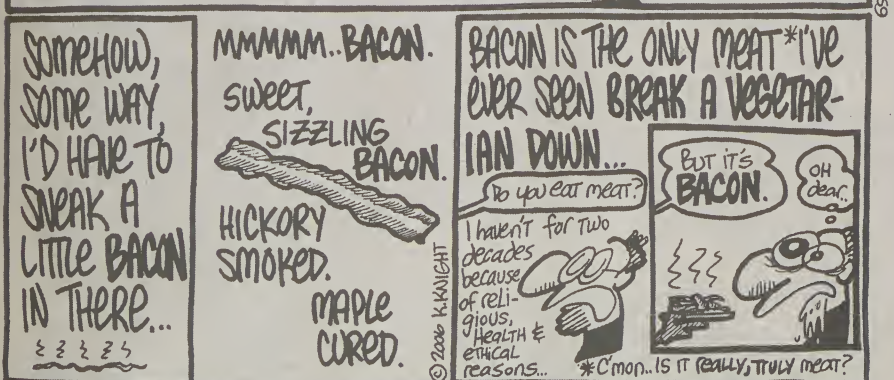 SOMEHOW,
SOME WAY,
I'D HAVE TO
SNEAK A
LITTLE BACON
IN THERE...
MMMMM..BACON.
SWEET,
SIZZLING
BACON.
HICKORY
SMOKED.
MAPLE
CURED.
© 2006 K.KNIGHT
BACON IS THE ONLY MEAT *I'VE
EVER SEEN BREAK A VEGETAR-
IAN DOWN...
Do you eat meat?
I haven't for two
decades
because
of reli-
gious,
HEALTH &
ethical
reasons...
BUT IT'S
BACON.
OH
dear..
*C'mon..IS IT REALLY, TRULY meat?